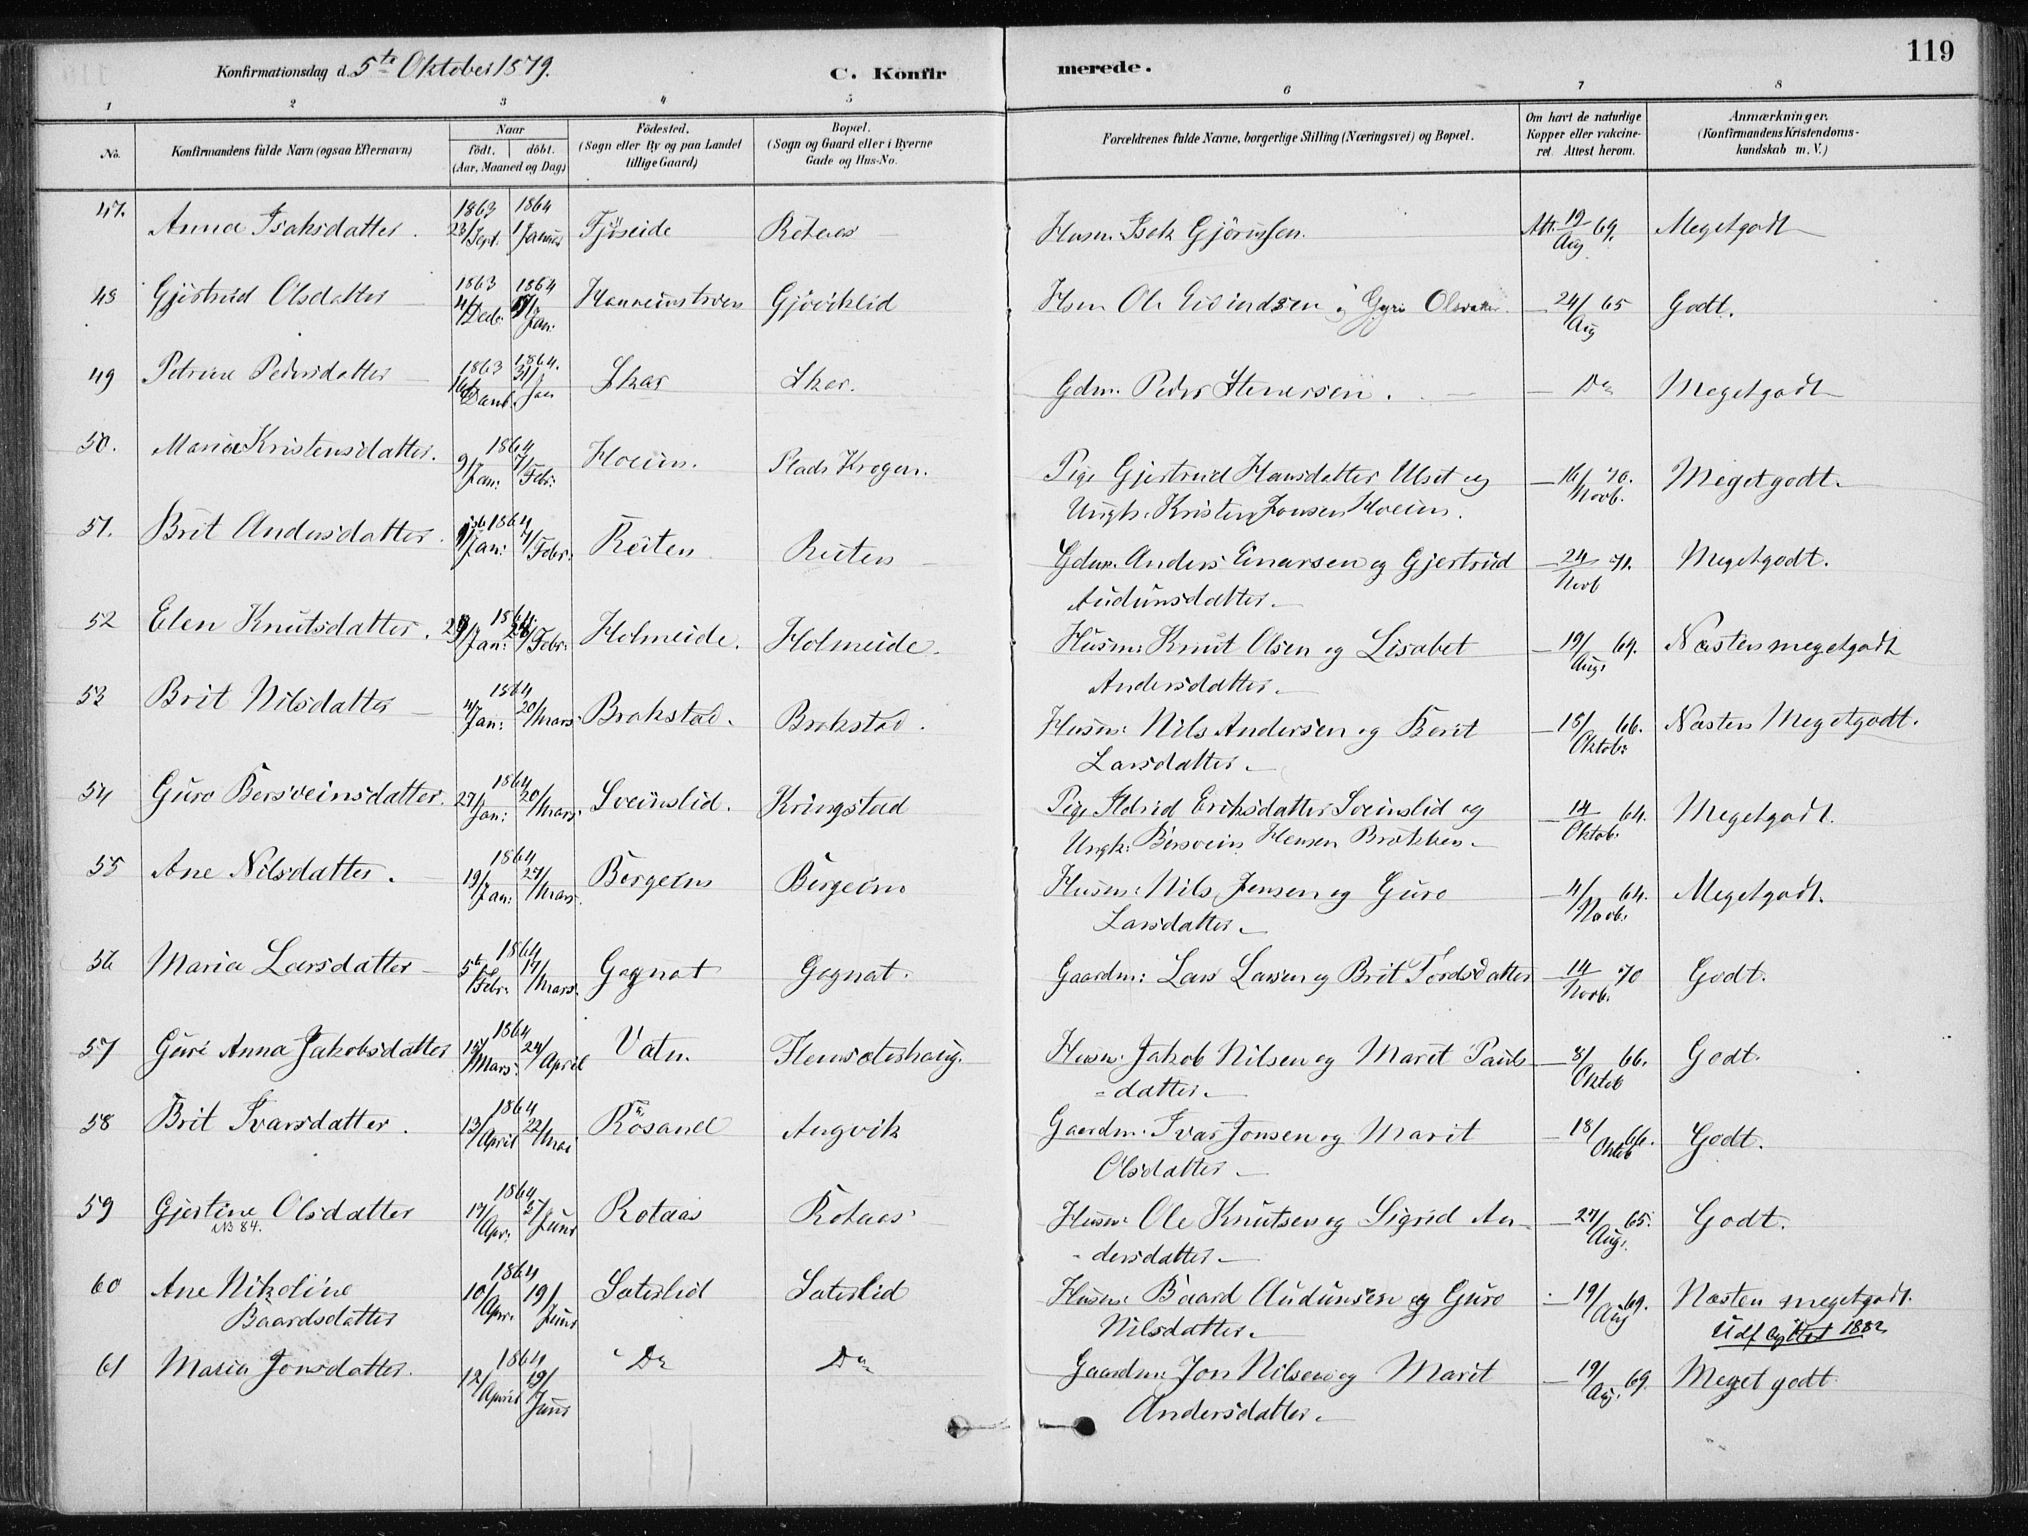 Konfirmationsdag d. 5te Oktober 1879.
C. Konfirmerede.
119
1 2 3 4 5 6 7 8
No.
Konfirmandens fulde Navn (ogsaa Efternavn)
Naar
födt. döbt.
(Aar, Maaned og Dag)
Födested.
(Sogn eller By og paa Landet
tillige Gaard)
Bopæl.
(Sogn og Gaard eller i Byerne
Gade og Hus-No.
Forældrenes fulde Navne, borgerlige Stilling (Næringsvei) og Bopæl.
Om havt de naturlige
Kopper eller vakcine-
ret. Attest herom.
Anmærkninger.
(Konfirmandens Kristendoms-
kundskab m. V.)
47. Anna Isaksdatter. 1863 23/Sept. 1864 1/Januar Tjöseide Rotaas Husm. Isak Gjörussen. Att. 19/Aug 69. Megetgodt
48 Gjertrud Olsdatter 1863 4/Decb. 1864 /Jan. Gjöviklid Husm Ole Eivindsen og Guri Olsdatter. 24/Aug 65 Godt.
49 Petrine Pedersdatter 1863 1864. 31/Jan Skar Skar. Gdm. Peder Stenersen. Do Megetgodt
50. Maria Kristensdatter. 1864 9/Jan: 7/Febr: Hoeim. Plads Krogen. Pige Gjertrud Hansdatter Ulset og
Ungk. Kristen Jonsen Hoeim. 16/Novb. 70. Megetgodt.
51. Brit Andersdatter. 1864 /Jan: /Febr: Reiten Reiten Gdm. Anders Einarsen og Gjertrud
Audunsdatter. 24/Novb 71. Megetgodt.
52 Elen Knutsdatter. 1864 /Jan: /Febr: Holmeide. Holmeide. Husm: Knut Olsen og Lisabet
Andersdatter. 19/Aug. 69. Næsten megetgodt
53 Brit Nilsdatter 1864 4/Jan: 20/Mars. Brakstad. Brakstad. Husm: Nils Andersen og Berit
Larsdatter. 15/Oktob: 66. Næsten Megetgodt.
54 Guro Bersveinsdatter. 1864 27/Jan: 20/Mars. Sveinslid. Kringstad Pige Ildrid Eriksdatter Sveinslid og
Ungk: Bersvein Hensen Brækken. 14/Oktob. 64. Megetgodt.
55 Ane Nilsdatter. 1864 19/Jan: 27/Mars. Bergeim Bergeim Husm: Nils Jensen og Guro
Larsdatter. 4/Novb. 64. Megetgodt.
56 Maria Larsdatter 1864 5te/Febr. 17/Mars. Gagnat Gagnat. Gaardm: Lars Larsen og Brit Tordsdatter 14/Novb. 70 Godt.
57 Guri Anna Jakobsdatter 1864 15/Mars. 24/April Vatn. Husm. Jakob Nilsen og Marit Pauls
=datter. 8/Oktob 66. Godt.
58 Brit Ivarsdatter. 1864 13/April 22/Mai Rösand Angvik Gaardm. Ivar Jonsen og Marit
Olsdatter 18/Oktob 66. Godt.
59 Gjertine Olsdatter 1864 17/Apr: 5/Juni Rotaas Rotaas Husm: Ole Knutsen og Sigrid An-
dersdatter. 27/Aug. 65. Godt.
NB 84.
60 Ane Nikoline
Baardsdatter 1864 10/Apr. 19/Juni Sæterlid Sæterlid Husm: Baard Audunsen og Guro
Nilsdatter. 19/Aug 69. Næsten megetgodt.
Udflyttet 1882
61 Maria Jonsdatter. 1864 12/April 19/Juni Do Do Gaardm: Jon Nilsen og Marit
Andersdatter. 19/Aug. 69. Meget godt